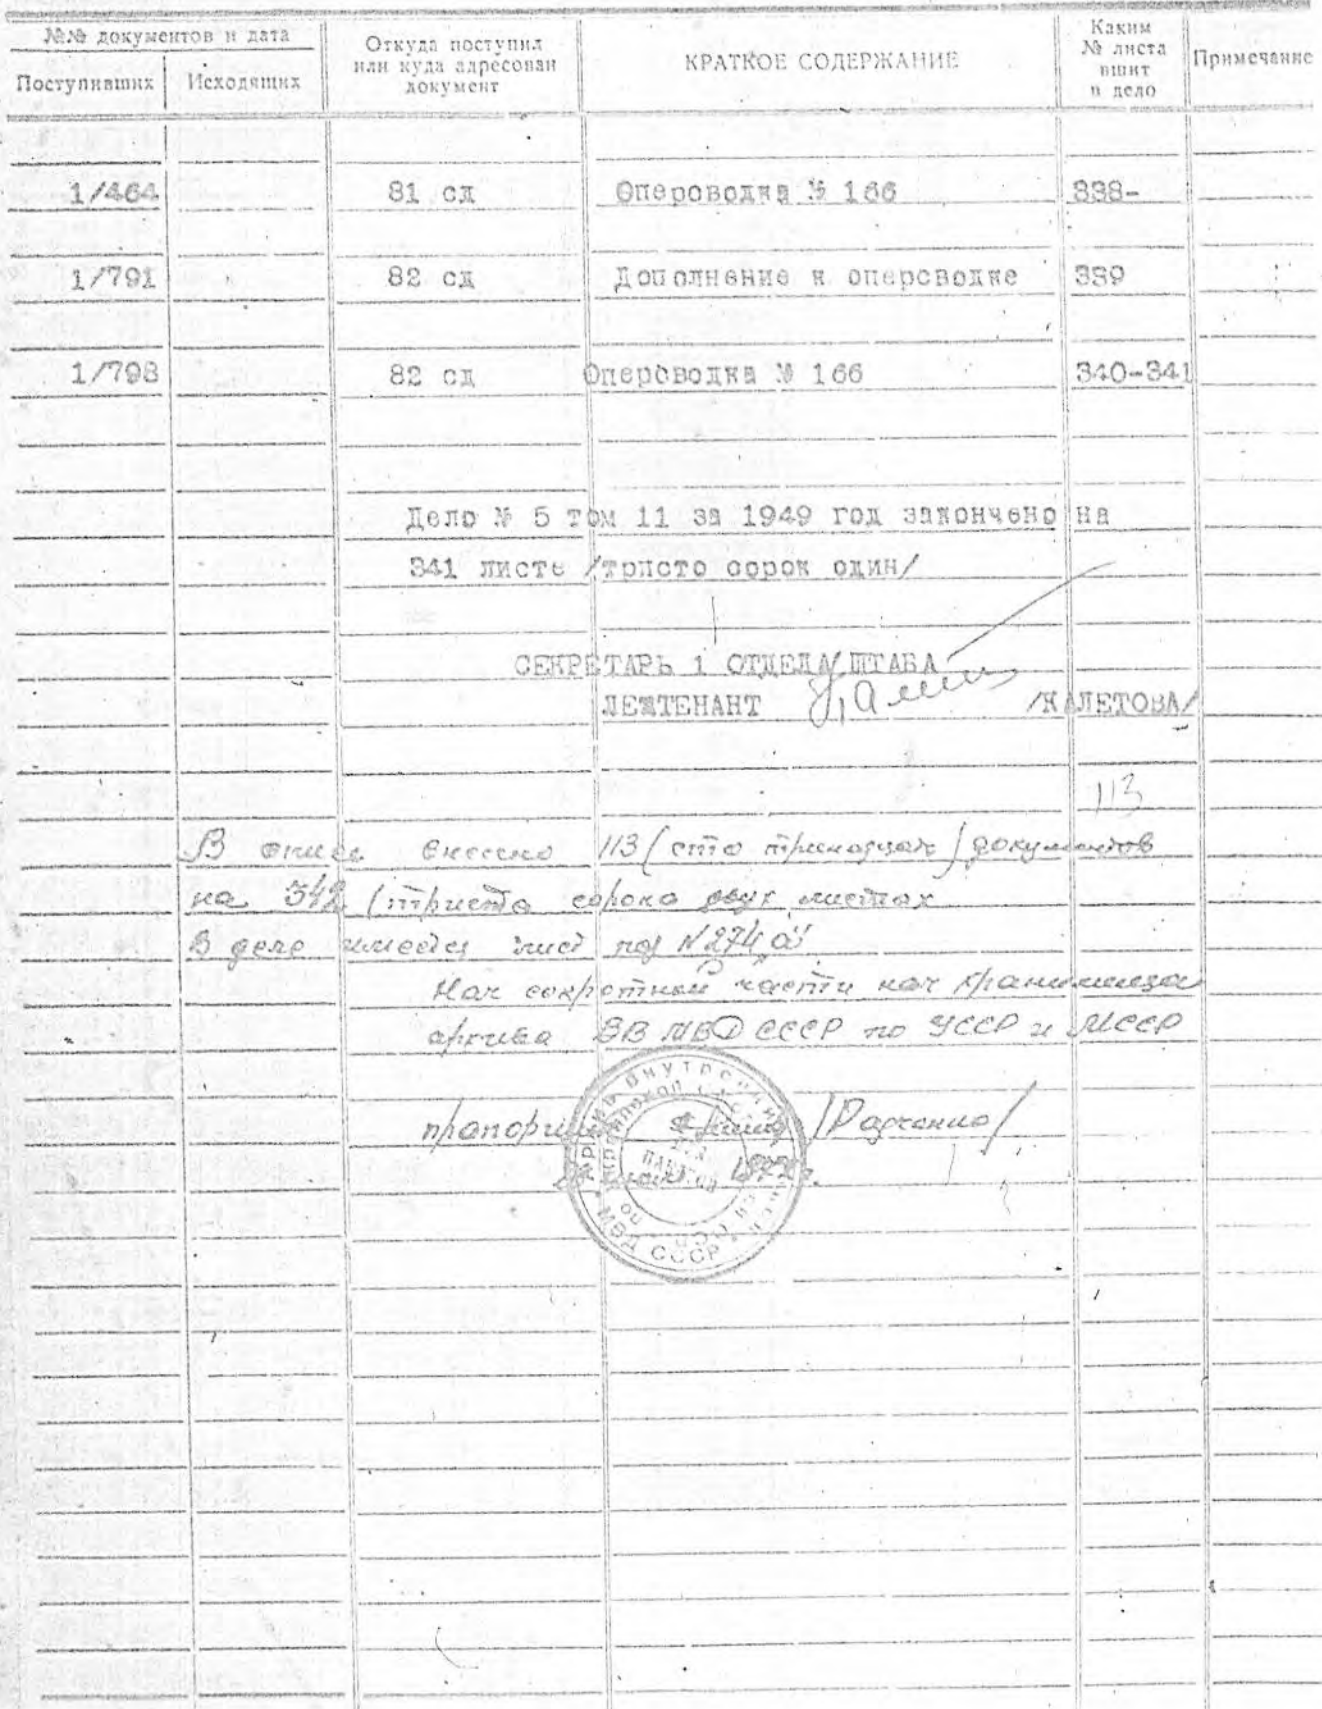 №№ документов и дата
Поступивших
Исходящих
Откуда поступил
или куда адресован
документ
КРАТКОЕ СОДЕРЖАНИЕ
Каким
№ листа
вшит
в дело
Примечание
1/464 81 сд Оперсводка № 166 338-
1/791 82 сд Дополнение к оперсводке 339
1/798 82 сд Оперсводка № 166 340-341
Дело № 5 том 11 за 1949 год закончено на
341 листе /триста сорок один/
СЕКРЕТАРЬ 1 ОТДЕЛА ШТАБА
ЛЕЙТЕНАНТ /КАЛЕТОВА/
113
В опись внесено 113 (сто тринадцать) документов
на 342 (триста сорока двух листах
В деле имеется лист под N 274 а"
Нач секретной части нач хранилища
архива ВВ МВД СССР по УССР и МССР
прапорщик /Радченко/
МВД СССР